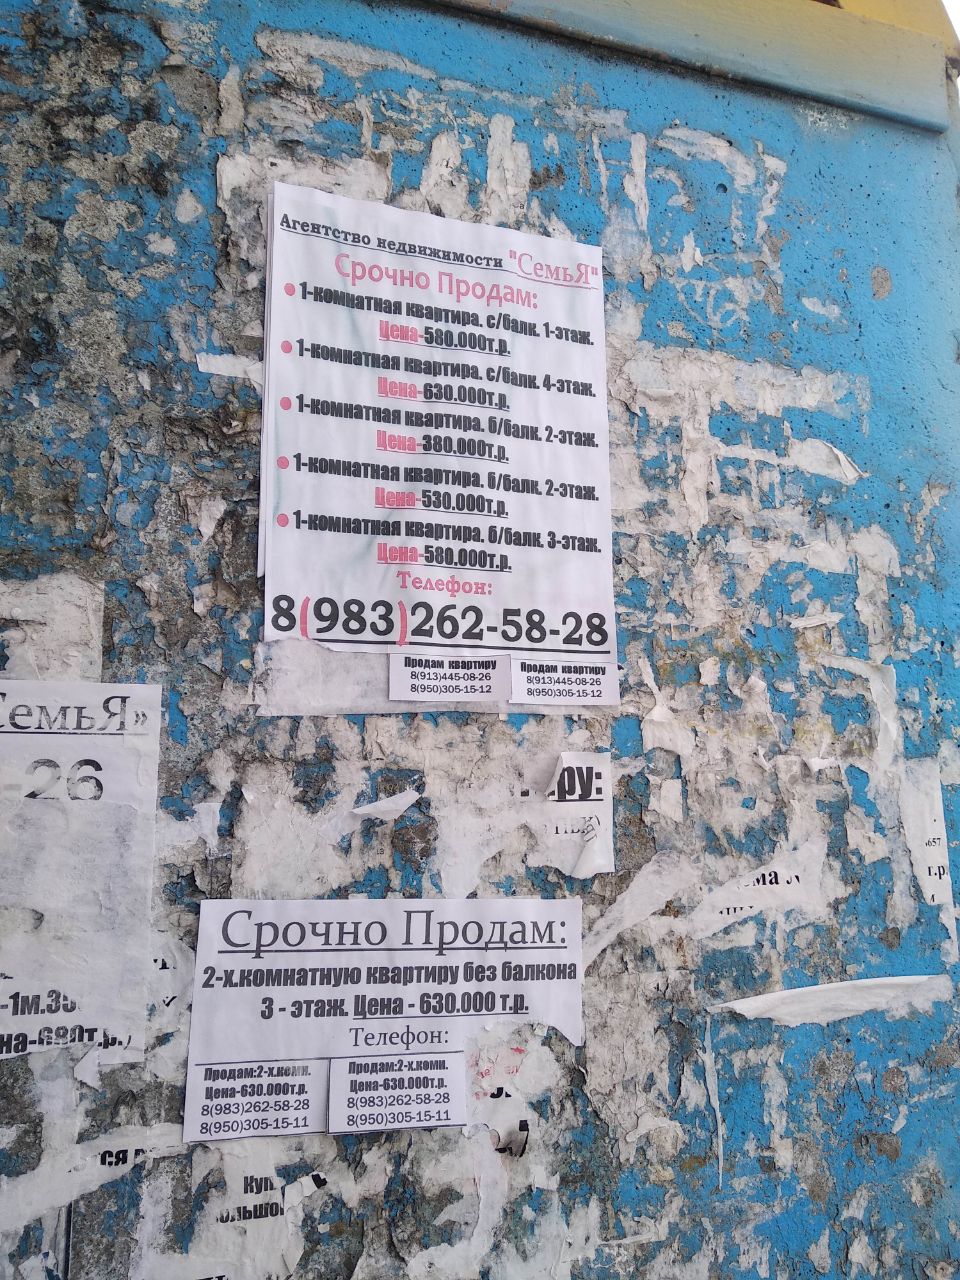 Агентство недвижимости "СемьЯ"
Срочно Продам:
1-комнатная квартира. с/балк. 1-этаж.
Цена-580.000т.р.
1-комнатная квартира. с/балк. 4-этаж.
Цена-630.000т.р.
1-комнатная квартира. б/балк. 2-этаж.
Цена-380.000т.р.
1-комнатная квартира. б/балк. 2-этаж.
Цена-530.000т.р.
1-комнатная квартира. б/балк. 3-этаж.
Цена-580.000т.р.
Телефон:
8(983)262-58-28
Продам квартиру
8(913)445-08-26
8(950)305-15-12
Продам квартиру
8(913)445-08-26
8(950)305-15-12
СемьЯ»
-26
ру:
Срочно Продам:
2-х.комнатную квартиру без балкона
3 - этаж. Цена - 630.000 т.р.
Телефон:
Продам:2-х.комн.
Цена-630.000т.р.
8(983)262-58-28
8(950)305-15-11
Продам:2-х.комн.
Цена-630.000т.р.
8(983)262-58-28
8(950)305-15-11